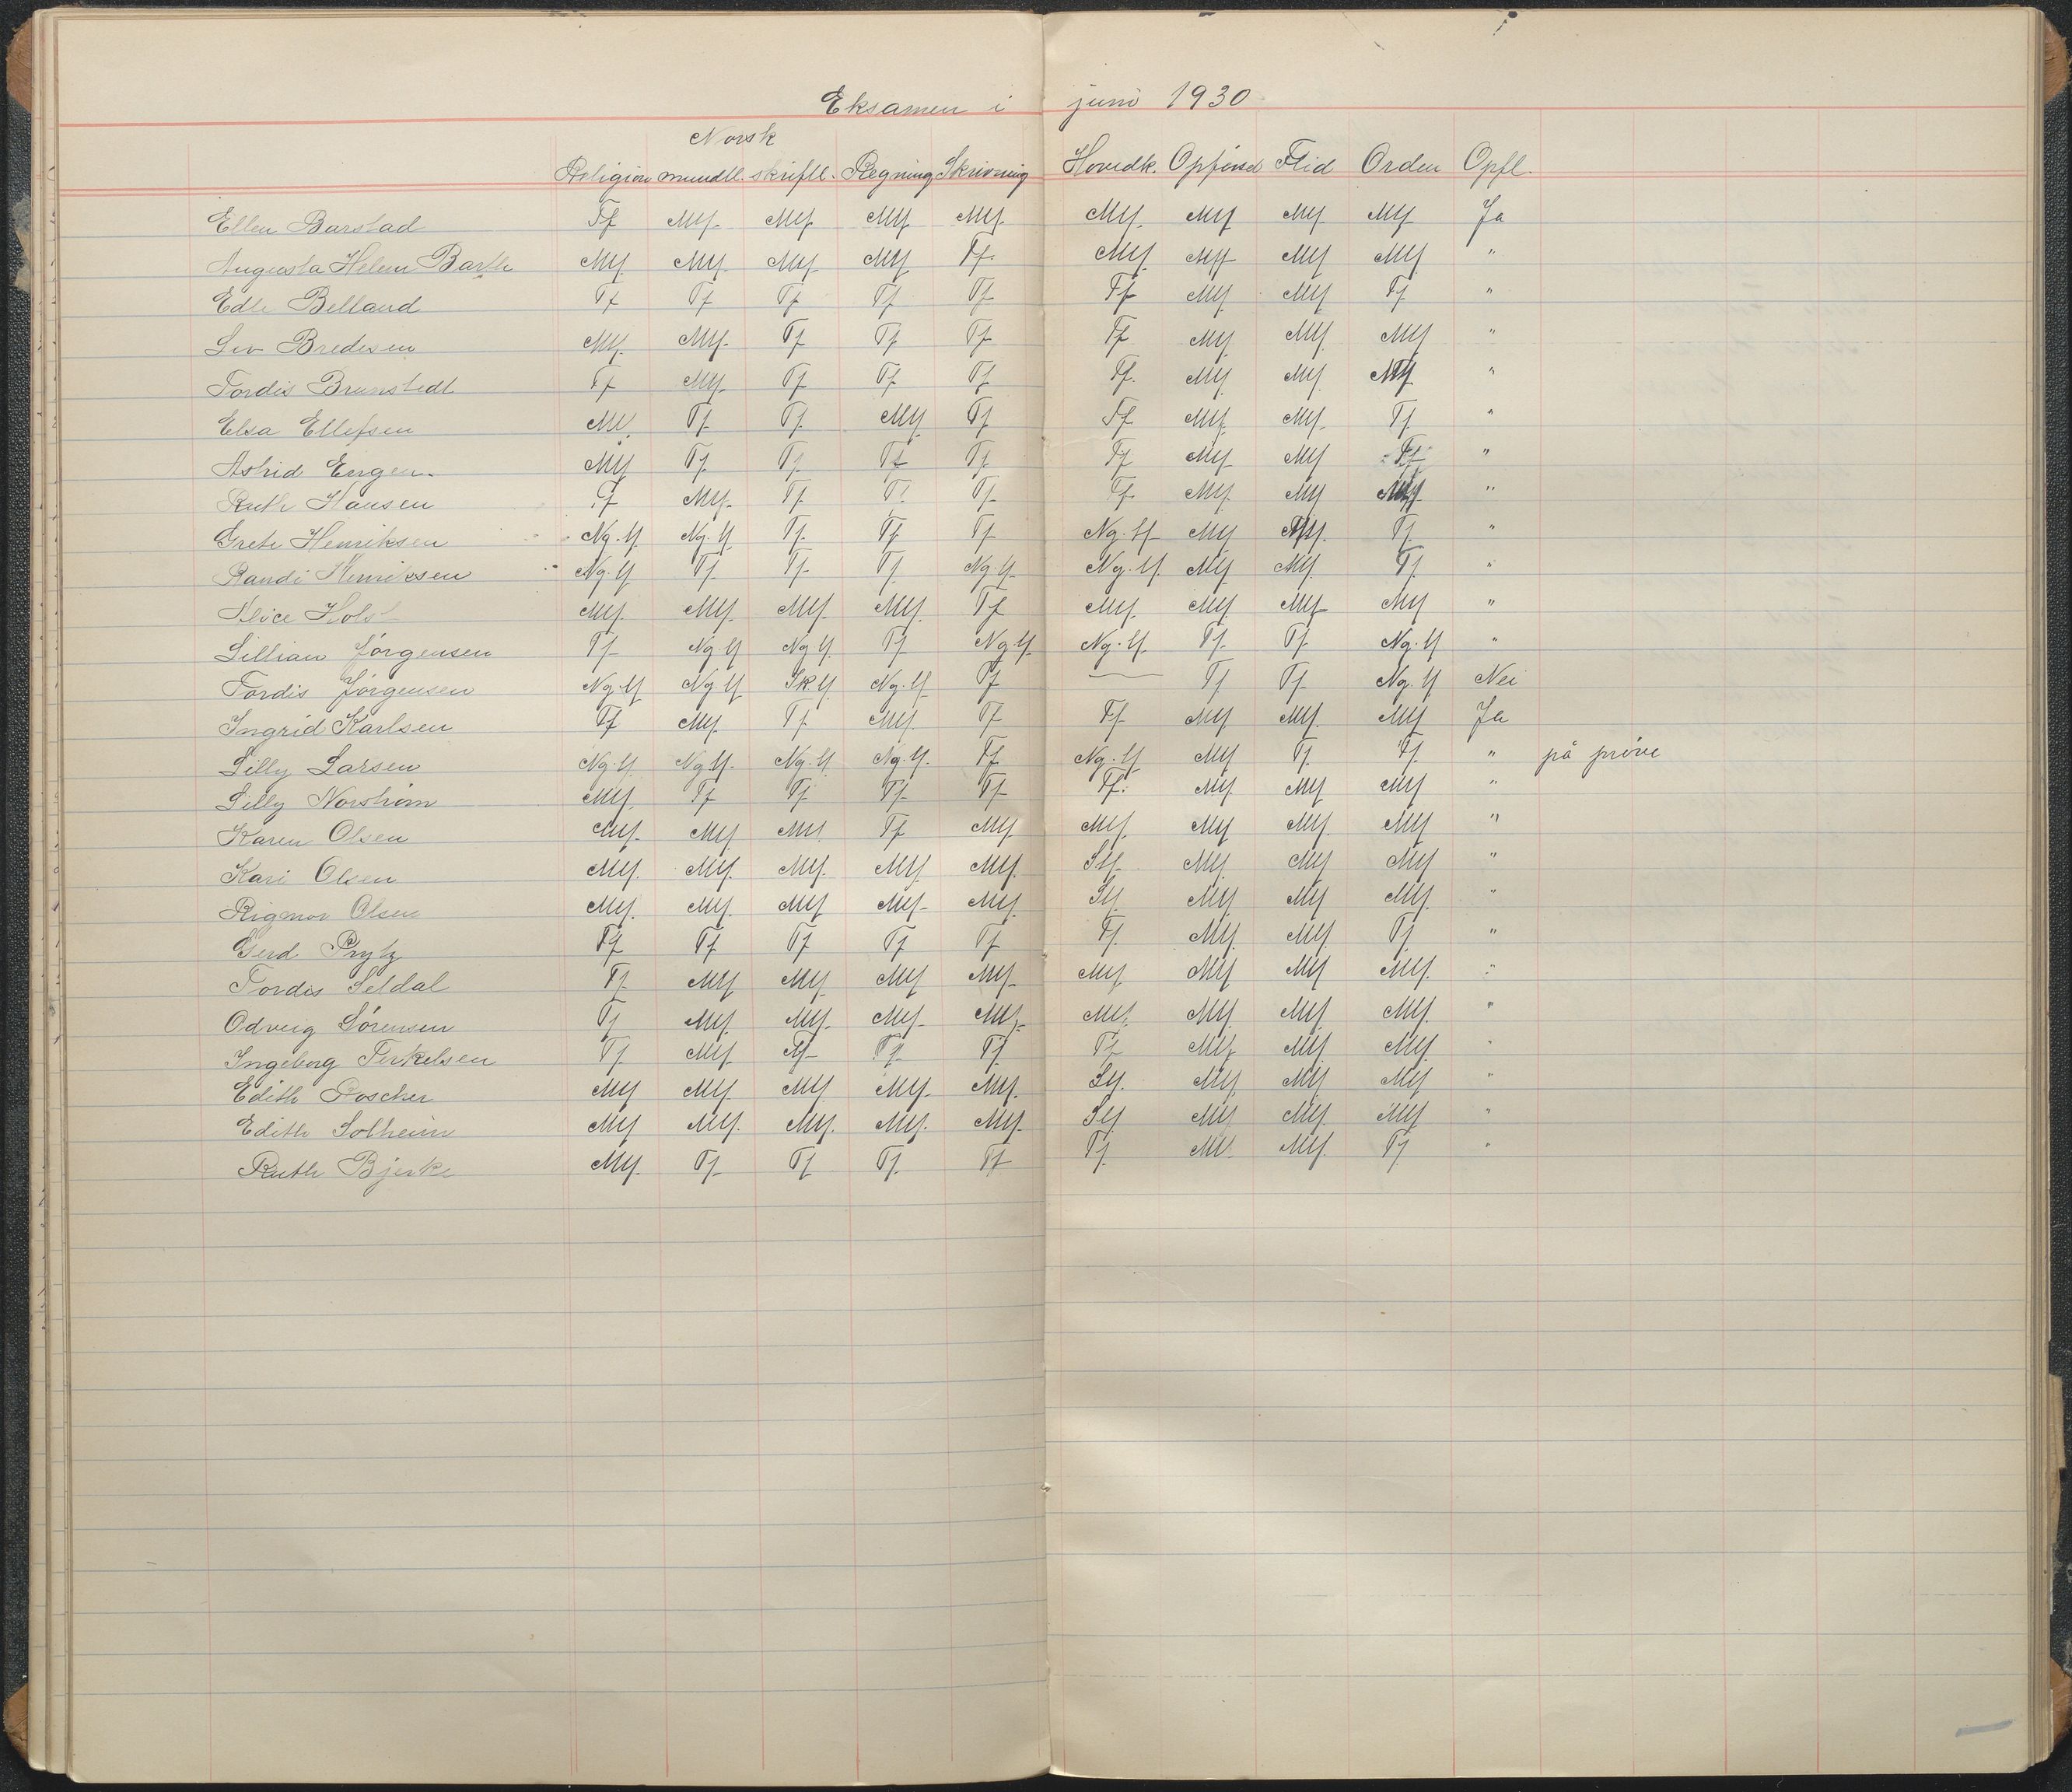 Eksamen i juni 1930
Norsk
Religion mundtl. skriftl. Regning Skrivning Hovedk. Opførsel Flid Orden Opfl.
Ellen Barstad Tf Mf. Mf. Mf Mf. Mf. Mf Mf Mf Ja
Augusta Helene Barth Mf Mf. Mf. Mf Tf. Mf. Mf Mf Mf "
Edle Belland Tf Tf Tf Tf Tf Tf Mf Mf Tf "
Liv Bredesen Mf. Mf. Tf Tf Tf Tf Mf Mf Mf "
Tordis Brunstedt Tf Mf Tf Tf Tf Tf. Mf Mf Mf "
Elsa Ellefsen Mf. Tf. Tf. Mf Tf Tf Mf Mf. Tf "
Astrid Engen. Mf Tf. Tf. Tf Tf Tf Mf Mf Tf "
Ruth Hansen Tf Mf. Tf. Tf. Tf. Tf. Mf. Mf Mf "
Grete Henriksen Ng.tf Ng.tf Tf. Tf Tf Ng.tf Mf Mf. Tf "
Randi Henriksen Ng.tf Tf Tf Tf Ng.tf Ng.tf. Mf Mf. Tf "
Alice Holst Mf. Mf. Mf. Mf. Tf Mf. Mf. Mf Mf "
Lillian Jørgensen Tf Ng.tf Ng tf Tf Ng.tf Ng.tf Tf. Tf Ng.tf "
Tordis Jørgensen Ng.tf Ng tf Sk tf Ng.tf Tf — Tf Tf Ng.tf Nei
Ingrid Karlsen Tf Mf. Tf Mf. Tf Tf Mf Mf. Mf Ja
Lilly Larsen Ng.tf Ng tf. Ng.tf Ng.tf. Tf Ng.tf Mf Tf. Tf " på prøve
Lilly Norstrøm Mf. Tf Tf Tf Tf Tf. Mf. Mf Mf "
Karen Olsen Mf. Mf. Mf. Tf Mf Mf. Mf Mf. Mf "
Kari Olsen Mf. Mf. Mf. Mf. Mf. Mf Mf. Mf "
Rigmor Olsen Mf. Mf. Mf Mf. Mf. Mf Mf Mf. "
Gerd Prytz Tf Tf Tf Tf Tf Tf. Mf. Mf. Tf "
Tordis Seldal Tf Mf Mf. Mf Mf. Mf Mf Mf Mf. "
Odveig Sørensen Tf Mf. Mf. Mf. Mf. Mf. Mf. Mf Mf. "
Ingeborg Terkelsen Tf Mf Tf Tf Tf Tf Mf Mf. Mf. "
Edith Mf Mf. Mf Mf. Mf. Mf. Mf Mf "
Edith Solheim Mf Mf. Mf. Mf. Mf. Mf Mf. Mf "
Ruth Bjerke Mf. Tf Tf Tf Tf Tf. Mf. Mf. Tf "